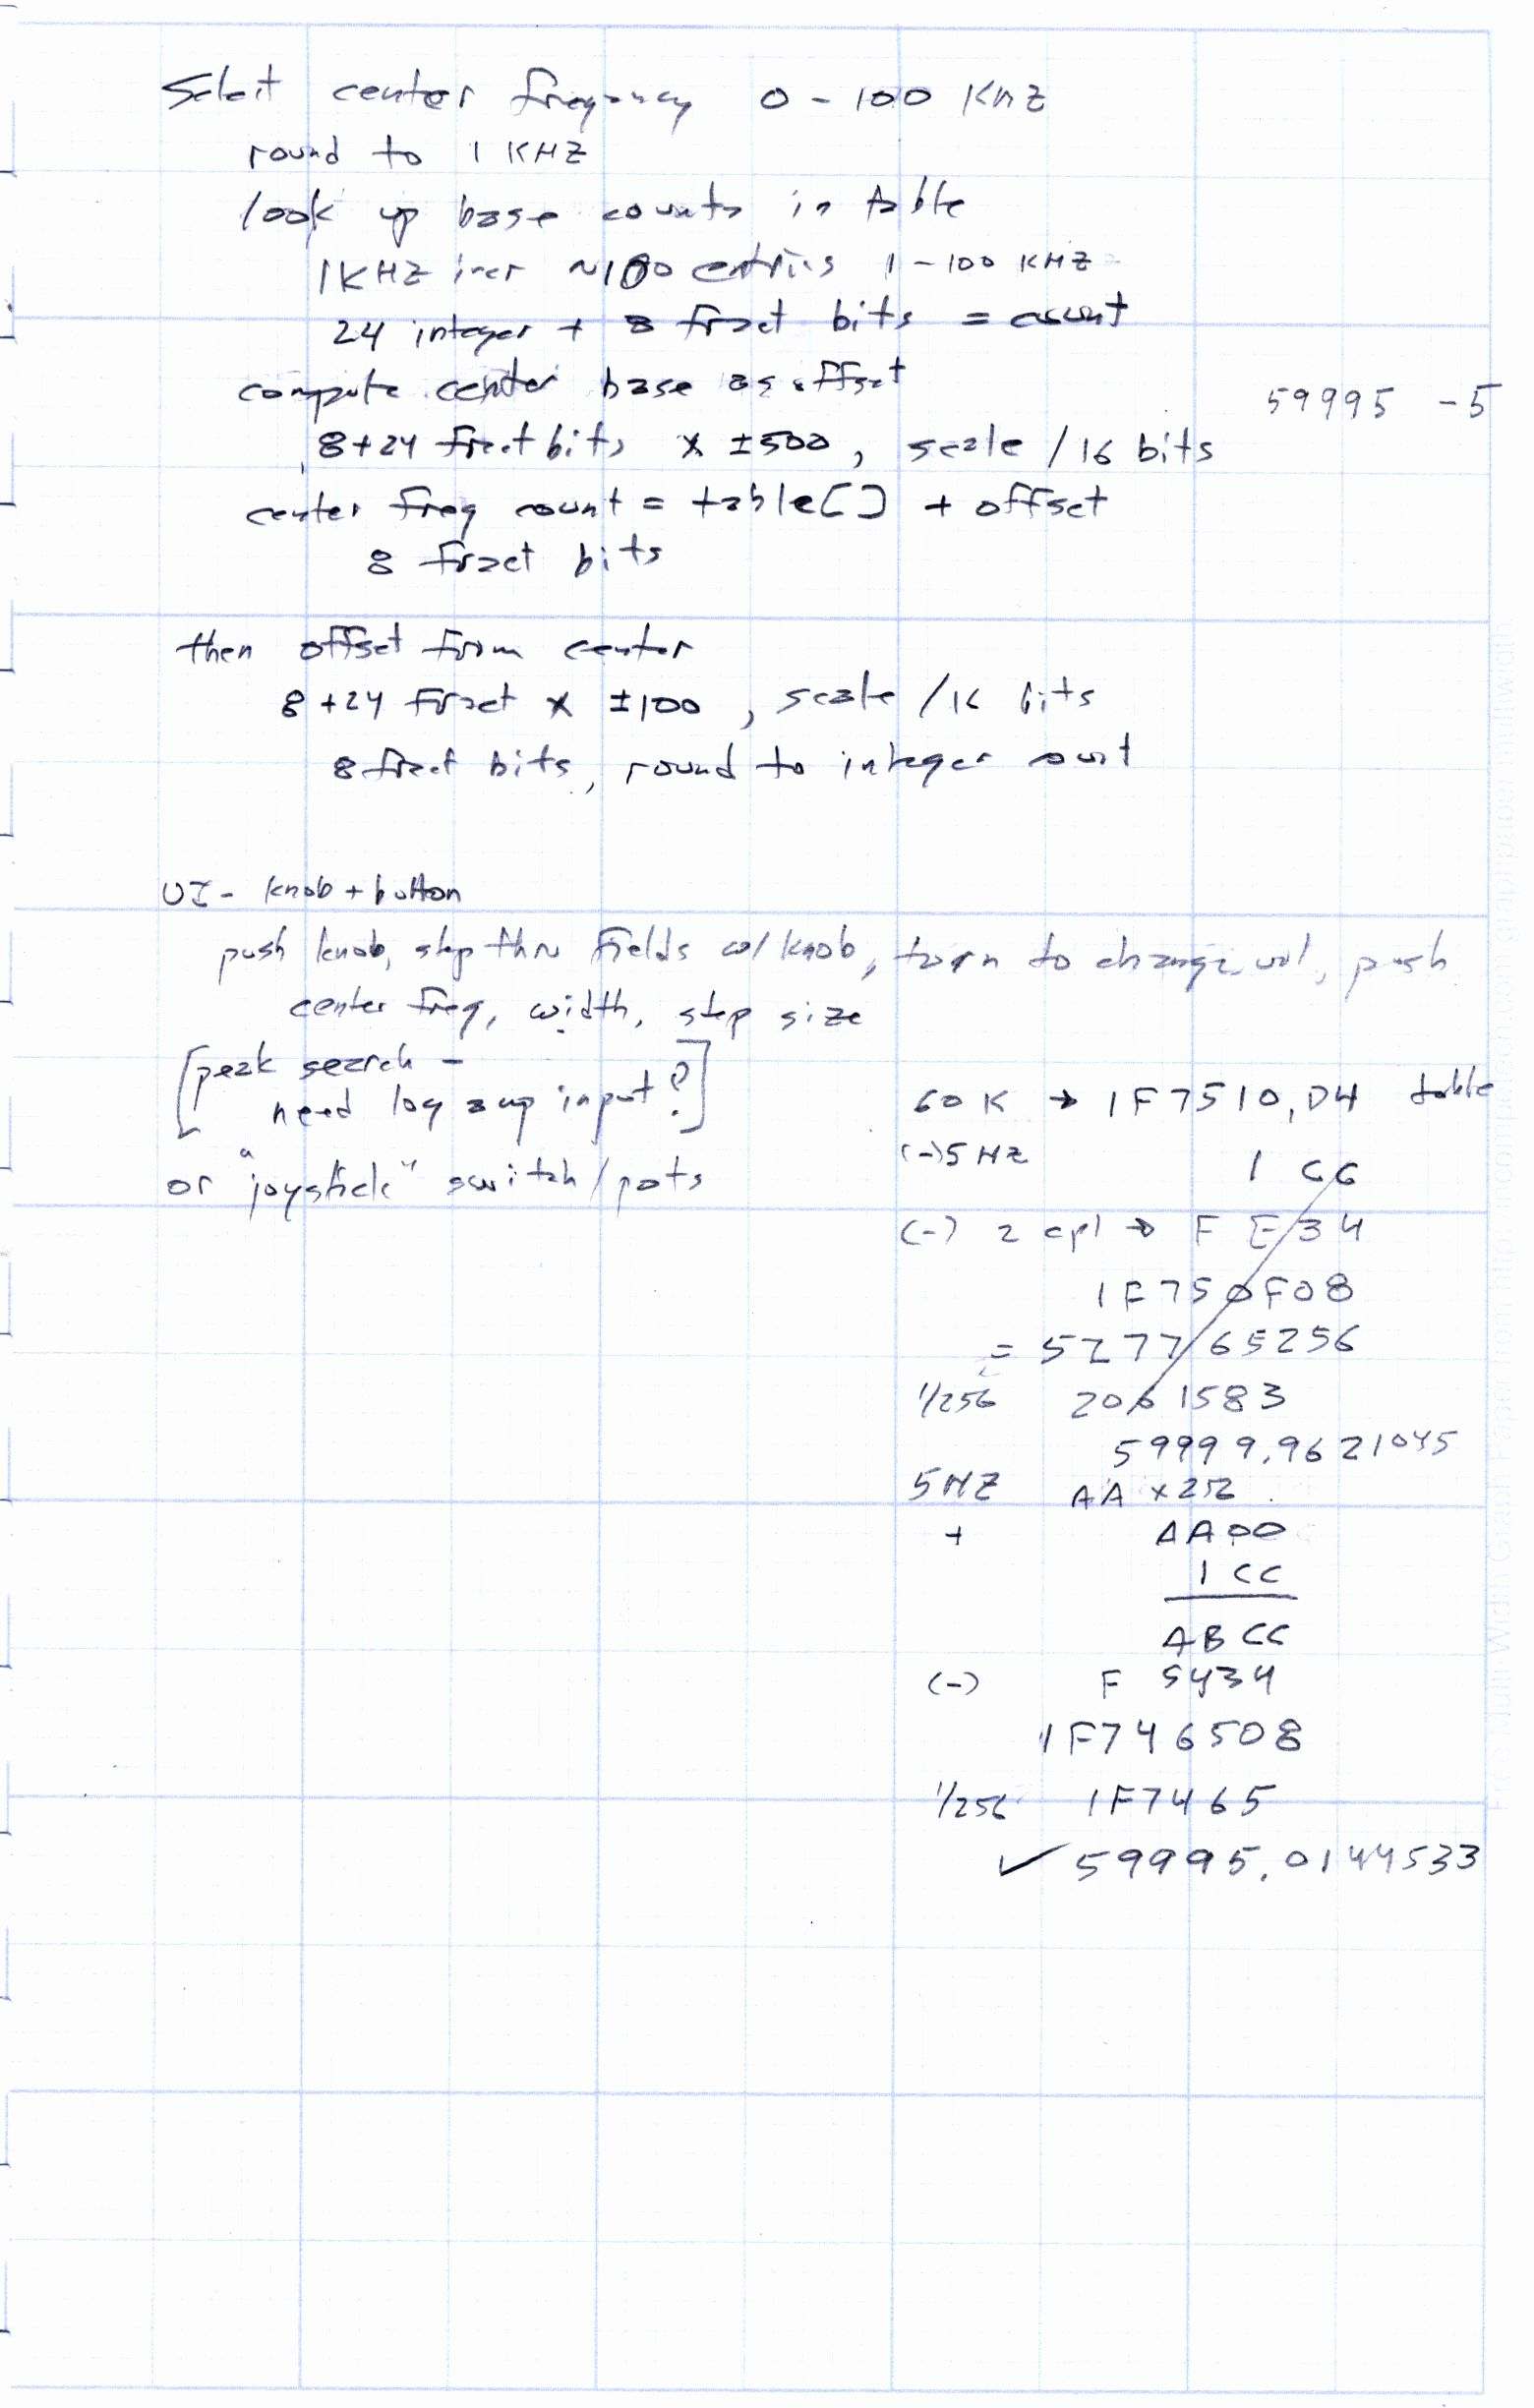 Select center frequency 0 - 100 KHZ
round to 1 KHZ
look up base counts in table
1KHZ incr ~100 entries 1-100 KHZ
24 integer + 8 fract bits = count
compute center base as offset
59995 -5
8+24 fract bits × ±500, scale /16 bits
center freq count = table[] + offset
8 fract bits
then offset from center
8+24 fract × ±100, scale /16 bits
8 fract bits, round to integer count
UI - knob + button
push knob, step thru fields w/ knob, turn to change val, push
center freq, width, step size
[peak search -
need log amp input?]
or "joystick" switch/pots
60 K → 1F7510,D4 table
(-)5 HZ 1 CC
(-) 2 cpl → F E34
1F750F08
= 527765256
1/256 2061583
59999.9621045
5HZ AA × 256
+ AA00
1 CC
ABCC
(-) F 5434
1F746508
1/256 1F7465
✓ 59995.0144533